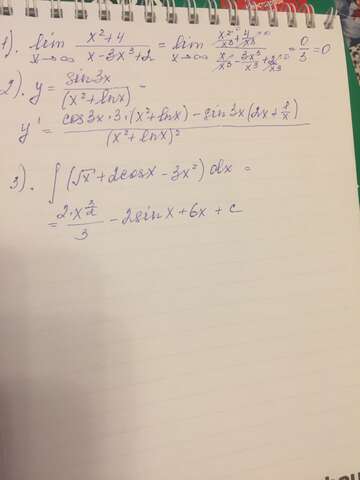 1). lim x→∞ (x²+4)/(x-3x³+2) = lim x→∞ (x²/x³ + 4/x³)/(x/x³ - 3x³/x³ + 2/x³) = 0/3 = 0
2). y = sin3x/(x²+lnx) -
y' = (cos3x·3·(x²+lnx) - sin3x(2x+1/x))/(x²+lnx)²
3). ∫(√x + 2cosx - 3x²)dx =
= 2·x^(3/2)/3 - 2sinx + 6x + c